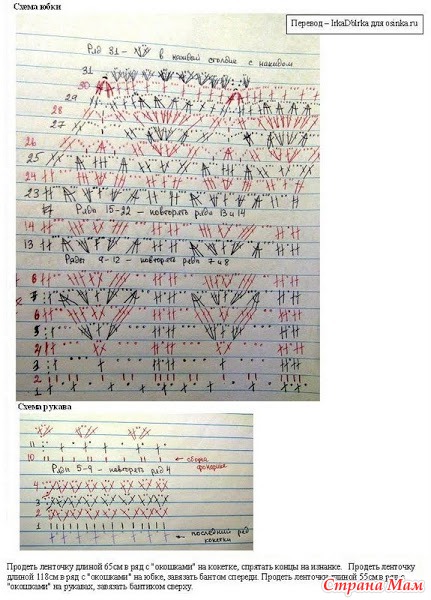 Схема юбки
Перевод – IrkaDЫrka для osinka.ru
Ряд 31 – в каждый столбик с накидом
31
30
29
28
27
26
25
24
23
Ряды 15-22 – повторять ряды 13 и 14
14
13
Ряды 9-12 – повторять ряды 7 и 8
8
7
6
5
4
3
2
1
Схема рукава
11
10
сборка фонарика
Ряды 5-9 – повторять ряд 4
4
3
2
1
последний ряд кокетки
Продеть ленточку длиной 65см в ряд с "окошками" на кокетке, спрятать концы на изнанке. Продеть ленточку
длиной 118см в ряд с "окошками" на юбке, завязать бантом спереди. Продеть ленточки длиной 55см в ряд с
"окошками" на рукавах, завязать бантиком сверху.
Страна Мам